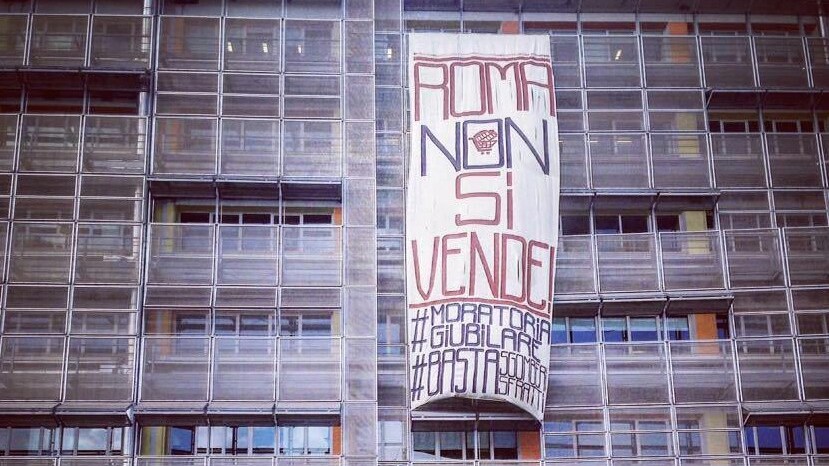 ROMA
NON
Si
VENDE!
#MORATORiA
GIUBILARE
#BASTA SGOMBERI
SFRATTI